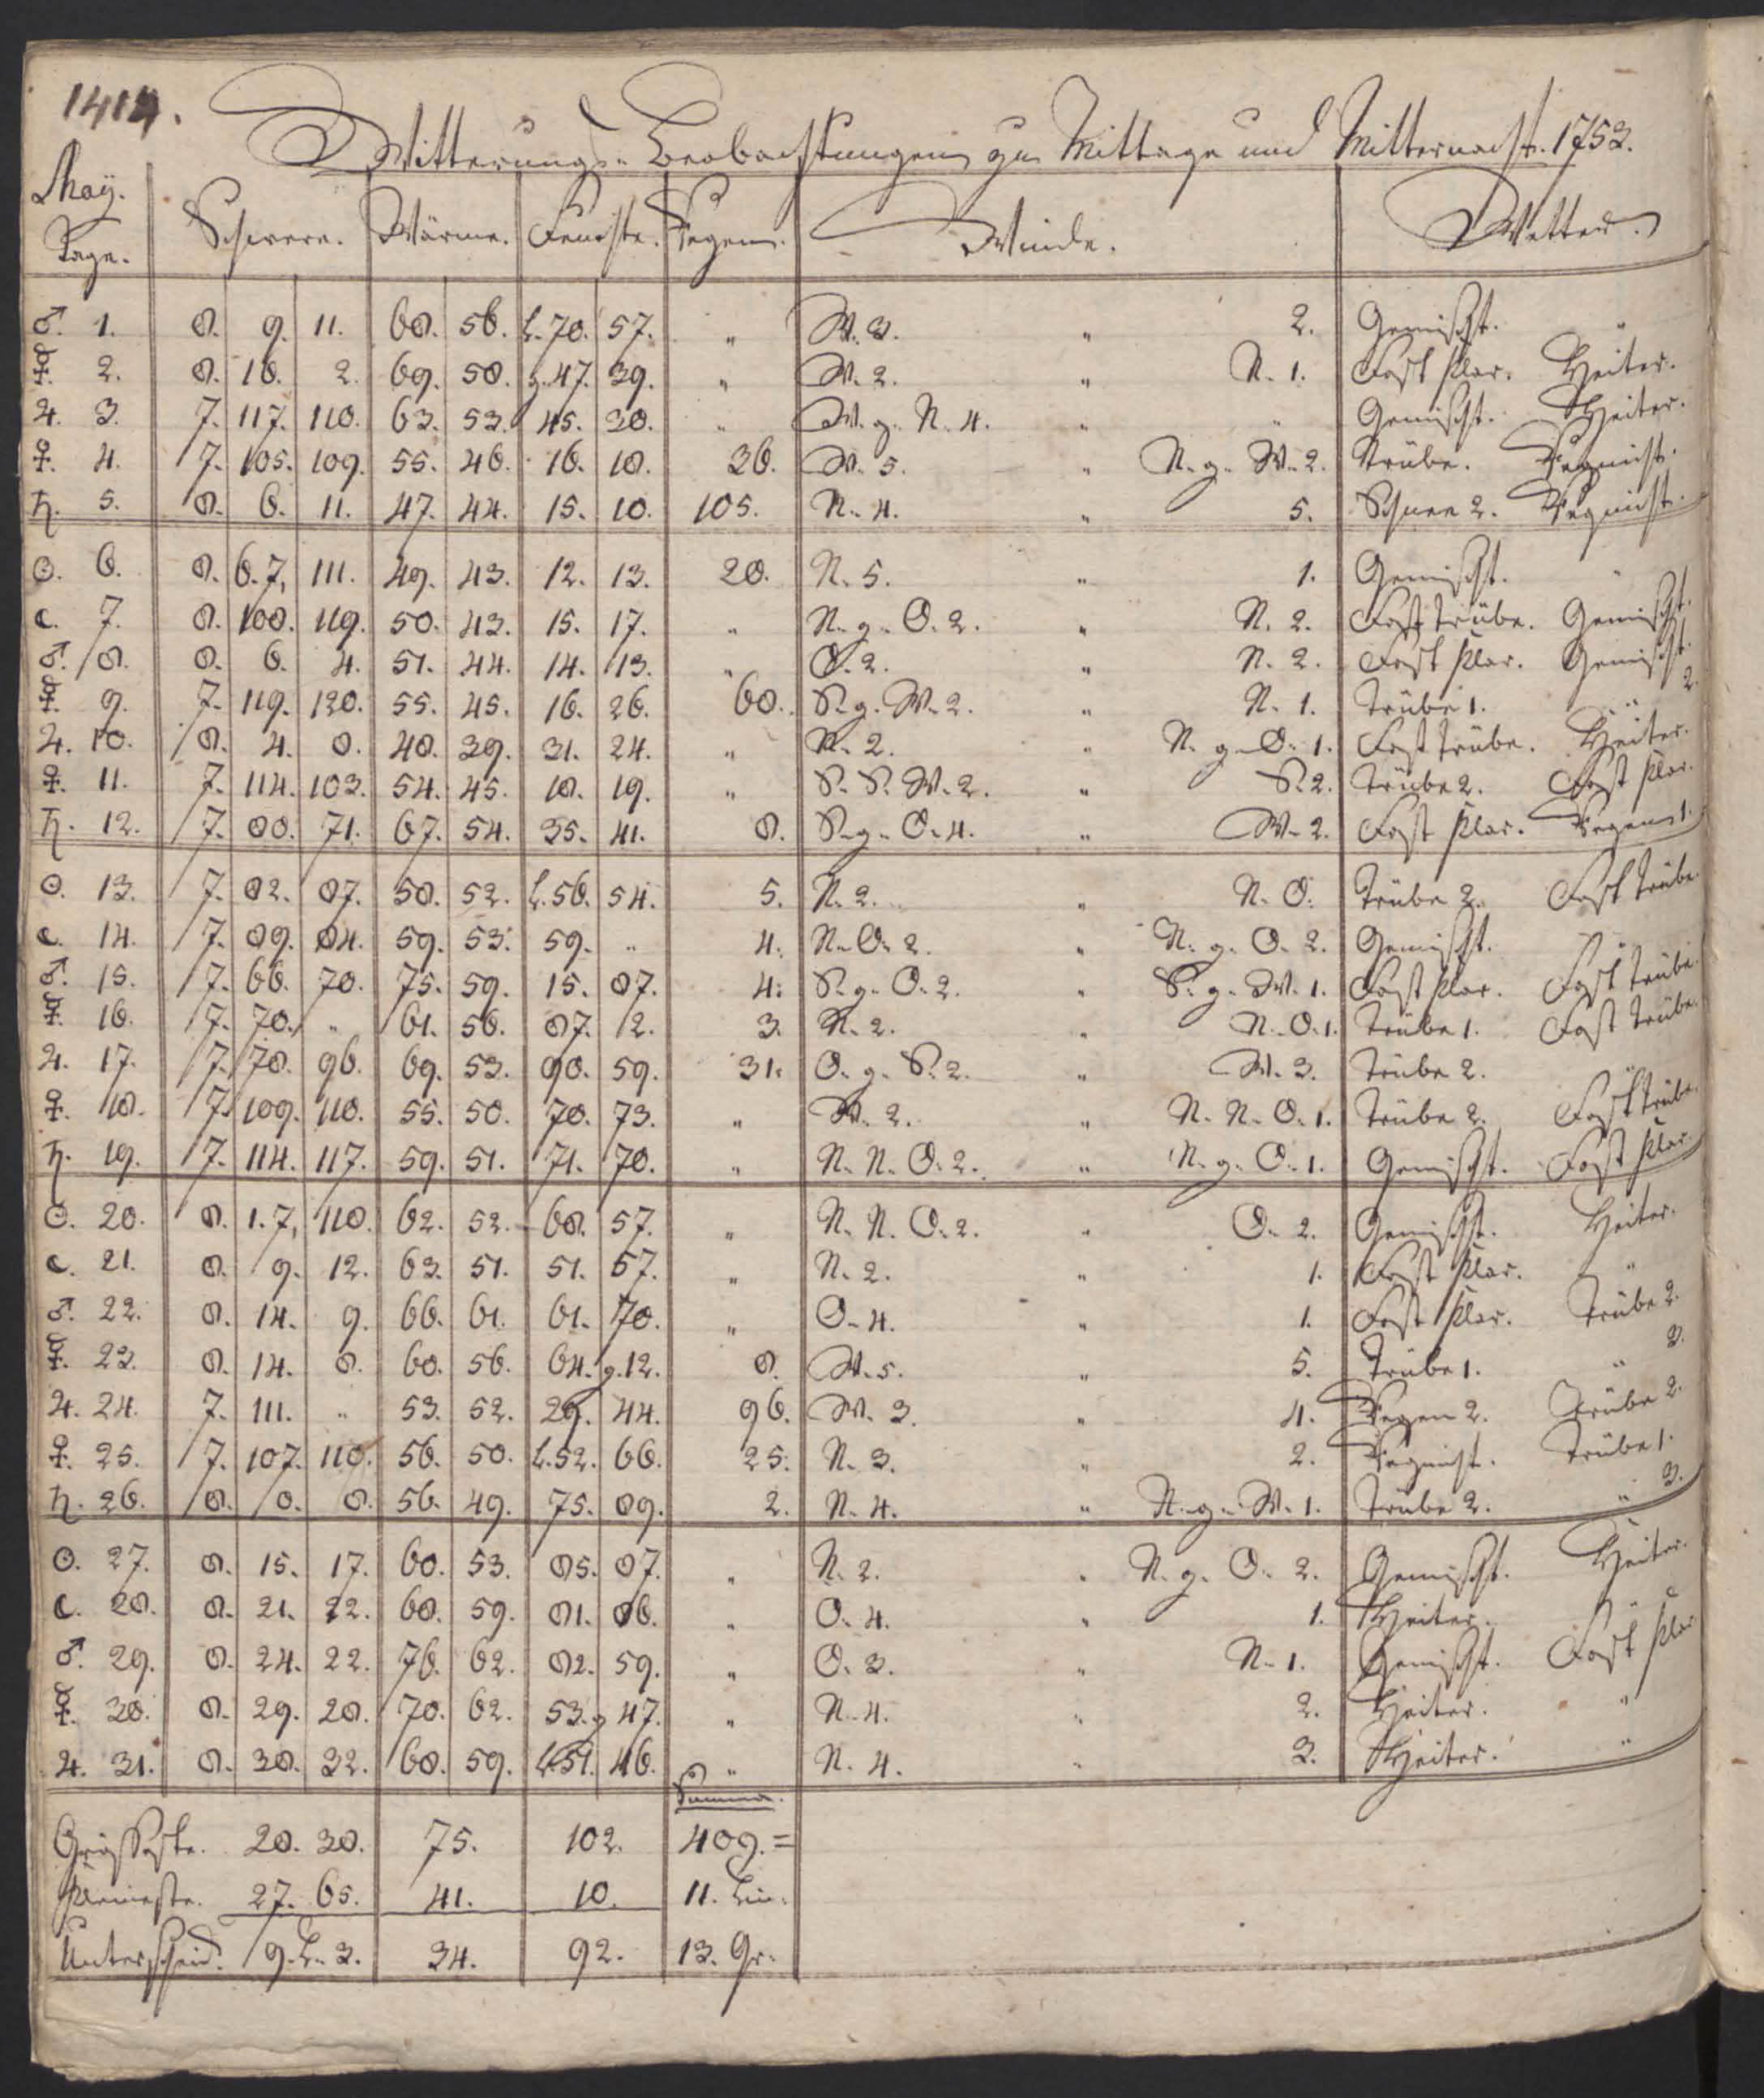 1414.
Witterungs-Beobachtungen zu Mittage und Mitternacht. 1753.
May. Tage. Schwere. Wärme. Feuchte. Regen. Winde. Wetter.
♂. 1. 8. 9. 11. 68. 56. L. 78. 57. " W. 3. " 2. Gemischt. "
☿. 2. 8. 10. 2. 69. 58. g. 47. 39. " W. 2. " N. 1. Fast klar. Heiter.
♃. 3. 7. 117. 110. 63. 53. 45. 30. " W. g. N. 4. " " Gemischt. Heiter.
♀. 4. 7. 105. 109. 55. 46. 16. 18. 36. W. 5. " N. g. W. 2. Trübe. Vermischt.
♄. 5. 8. 6. 11. 47. 44. 15. 10. 105. N. 4. " 5. Schnee 2. Vermischt.
☉. 6. 8. 6. 7, 111. 49. 43. 12. 13. 20. N. 5. " 1. Gemischt. "
☾. 7. 8. 108. 119. 50. 43. 15. 17. " N. g. O. 2. " N. 2. Fast trübe. Gemischt.
♂. 8. 8. 6. 4. 51. 44. 14. 13. " O. 2. " N. 2. Fast klar. Gemischt.
☿. 9. 7. 119. 120. 55. 45. 16. 26. 60. S. g. W. 2. " N. 1. Trübe 1. " 2.
♃. 10. 8. 4. 0. 48. 39. 31. 24. " N. 2. " N. g. O. 1. Fast trübe. Heiter.
♀. 11. 7. 114. 103. 54. 45. 18. 19. " S. S. W. 2. " S. 2. Trübe 2. Fast klar.
♄. 12. 7. 80. 71. 67. 54. 35. 41. 8. S. g. O. 4. " W. 2. Fast klar. Regen 1.
☉. 13. 7. 82. 87. 58. 52. L. 56. 54. 5. N. 2. " N. O. Trübe 2. Fast trübe.
☾. 14. 7. 89. 84. 59. 53. 59. " 4. N. O. 2. " N. g. O. 2. Gemischt. "
♂. 15. 7. 66. 70. 75. 59. 15. 87. 4. S. g. O. 2. " S. g. W. 1. Fast klar. Fast trübe.
☿. 16. 7. 70. " 61. 56. 87. 12. 3. N. 2. " N. O. 1. Trübe 1. Fast trübe.
♃. 17. 7. 78. 96. 69. 53. 90. 59. 31. O. g. S. 2. " W. 3. Trübe 2. "
♀. 18. 7. 109. 110. 55. 50. 70. 73. " W. 2. " N. N. O. 1. Trübe 2. Fast trübe.
♄. 19. 7. 114. 117. 59. 51. 71. 70. " N. N. O. 2. " N. g. O. 1. Gemischt. Fast klar.
☉. 20. 8. 1. 7, 118. 62. 52. 68. 57. " N. N. O. 2. " O. 2. Gemischt. Heiter.
☾. 21. 8. 9. 12. 63. 51. 51. 57. " N. 2. " 1. Fast klar. "
♂. 22. 8. 14. 9. 66. 61. 61. 70. " O. 4. " 1. Fast klar. Trübe 2.
☿. 23. 8. 14. 8. 60. 56. 64. g. 12. 8. W. 5. " 5. Trübe 1. " 3.
♃. 24. 7. 111. " 53. 52. 29. 44. 96. W. 3. " 4. Regen 2. Trübe 2.
♀. 25. 7. 107. 110. 56. 50. L. 52. 66. 25. N. 3. " 2. Vermischt. Trübe 1.
♄. 26. 8. 0. 8. 56. 49. 75. 89. 2. N. 4. " N. g. W. 1. Trübe 2. " 3.
☉. 27. 8. 15. 17. 60. 53. 85. 87. " N. 2. " N. g. O. 2. Gemischt. Heiter.
☾. 28. 8. 21. 22. 68. 59. 81. 86. " O. 4. " 1. Heiter. "
♂. 29. 8. 24. 22. 76. 62. 82. 59. " O. 3. " N. 1. Gemischt. Fast klar.
☿. 30. 8. 29. 28. 70. 62. 53. g 47. " N. 4. " 2. Heiter. "
♃. 31. 8. 30. 32. 68. 59. L. 51. 46. " N. 4. " 3. Heiter. "
Summa.
Grösseste. 28. 30. 75. 102. 409. =
Kleineste. 27. 65. 41. 10. 11. Lin.
Unterscheid. 9. L. 3. 34. 92. 13. Gr.